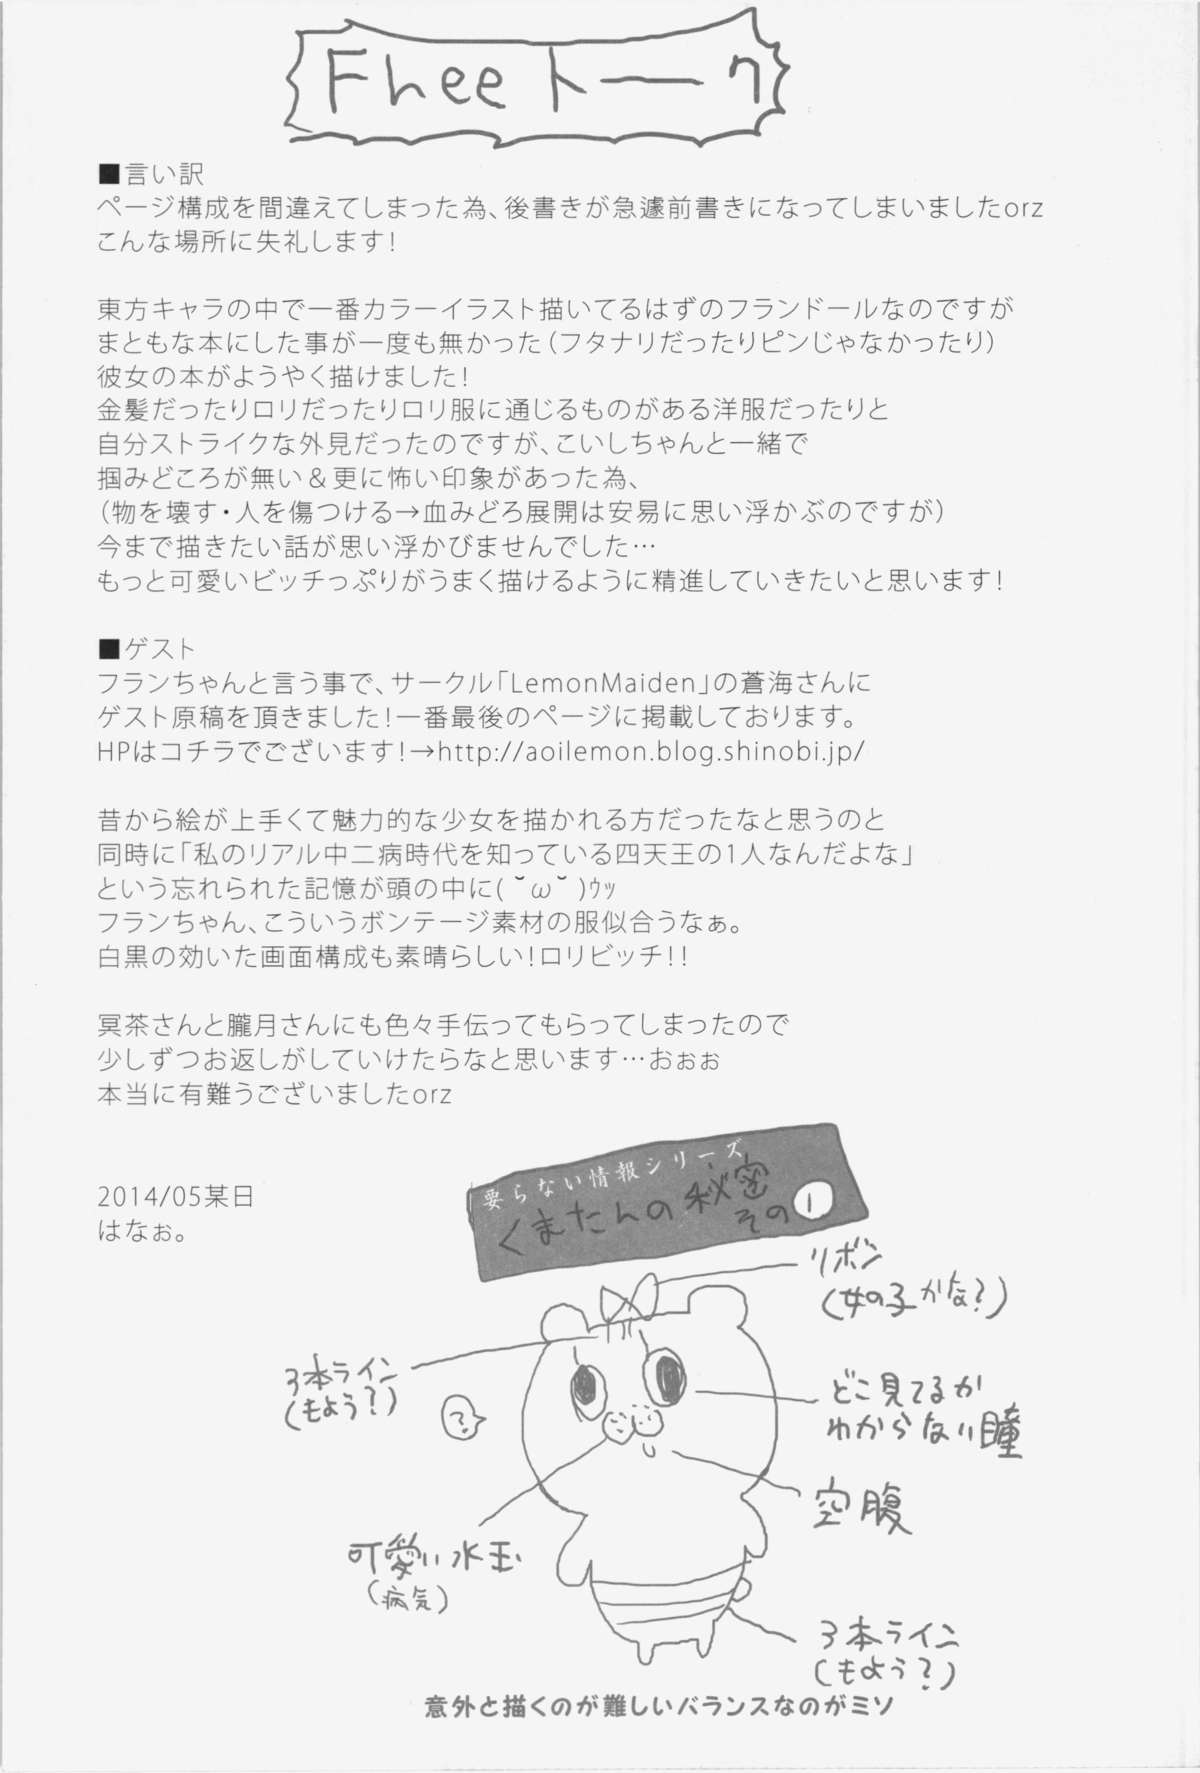 Fhee トーク
■言い訳
ページ構成を間違えてしまった為、後書きが急遽前書きになってしまいましたorz
こんな場所に失礼します！
東方キャラの中で一番カラーイラスト描いてるはずのフランドールなのですが
まともな本にした事が一度も無かった（フタナリだったりピンじゃなかったり）
彼女の本がようやく描けました！
金髪だったりロリだったりロリ服に通じるものがある洋服だったりと
自分ストライクな外見だったのですが、こいしちゃんと一緒で
掴みどころが無い＆更に怖い印象があった為、
（物を壊す・人を傷つける→血みどろ展開は安易に思い浮かぶのですが）
今まで描きたい話が思い浮かびませんでした…
もっと可愛いビッチっぷりがうまく描けるように精進していきたいと思います！
■ゲスト
フランちゃんと言う事で、サークル「LemonMaiden」の蒼海さんに
ゲスト原稿を頂きました！一番最後のページに掲載しております。
HPはコチラでございます！→http://aoilemon.blog.shinobi.jp/
昔から絵が上手くて魅力的な少女を描かれる方だったなと思うのと
同時に「私のリアル中二病時代を知っている四天王の1人なんだよな」
という忘れられた記憶が頭の中に( ˘ω˘ )ｳｯ
フランちゃん、こういうボンテージ素材の服似合うなぁ。
白黒の効いた画面構成も素晴らしい！ロリビッチ！！
冥茶さんと朧月さんにも色々手伝ってもらってしまったので
少しずつお返しがしていけたらなと思います…おぉぉ
本当に有難うございましたorz
2014/05某日
はなぉ。
要らない情報シリーズ
くまたんの秘密
その1
リボン
(女の子かな？)
3本ライン
(もよう？)
?
どこ見てるか
わからない瞳
空腹
可愛い水玉
(病気)
3本ライン
(もよう？)
意外と描くのが難しいバランスなのがミソ